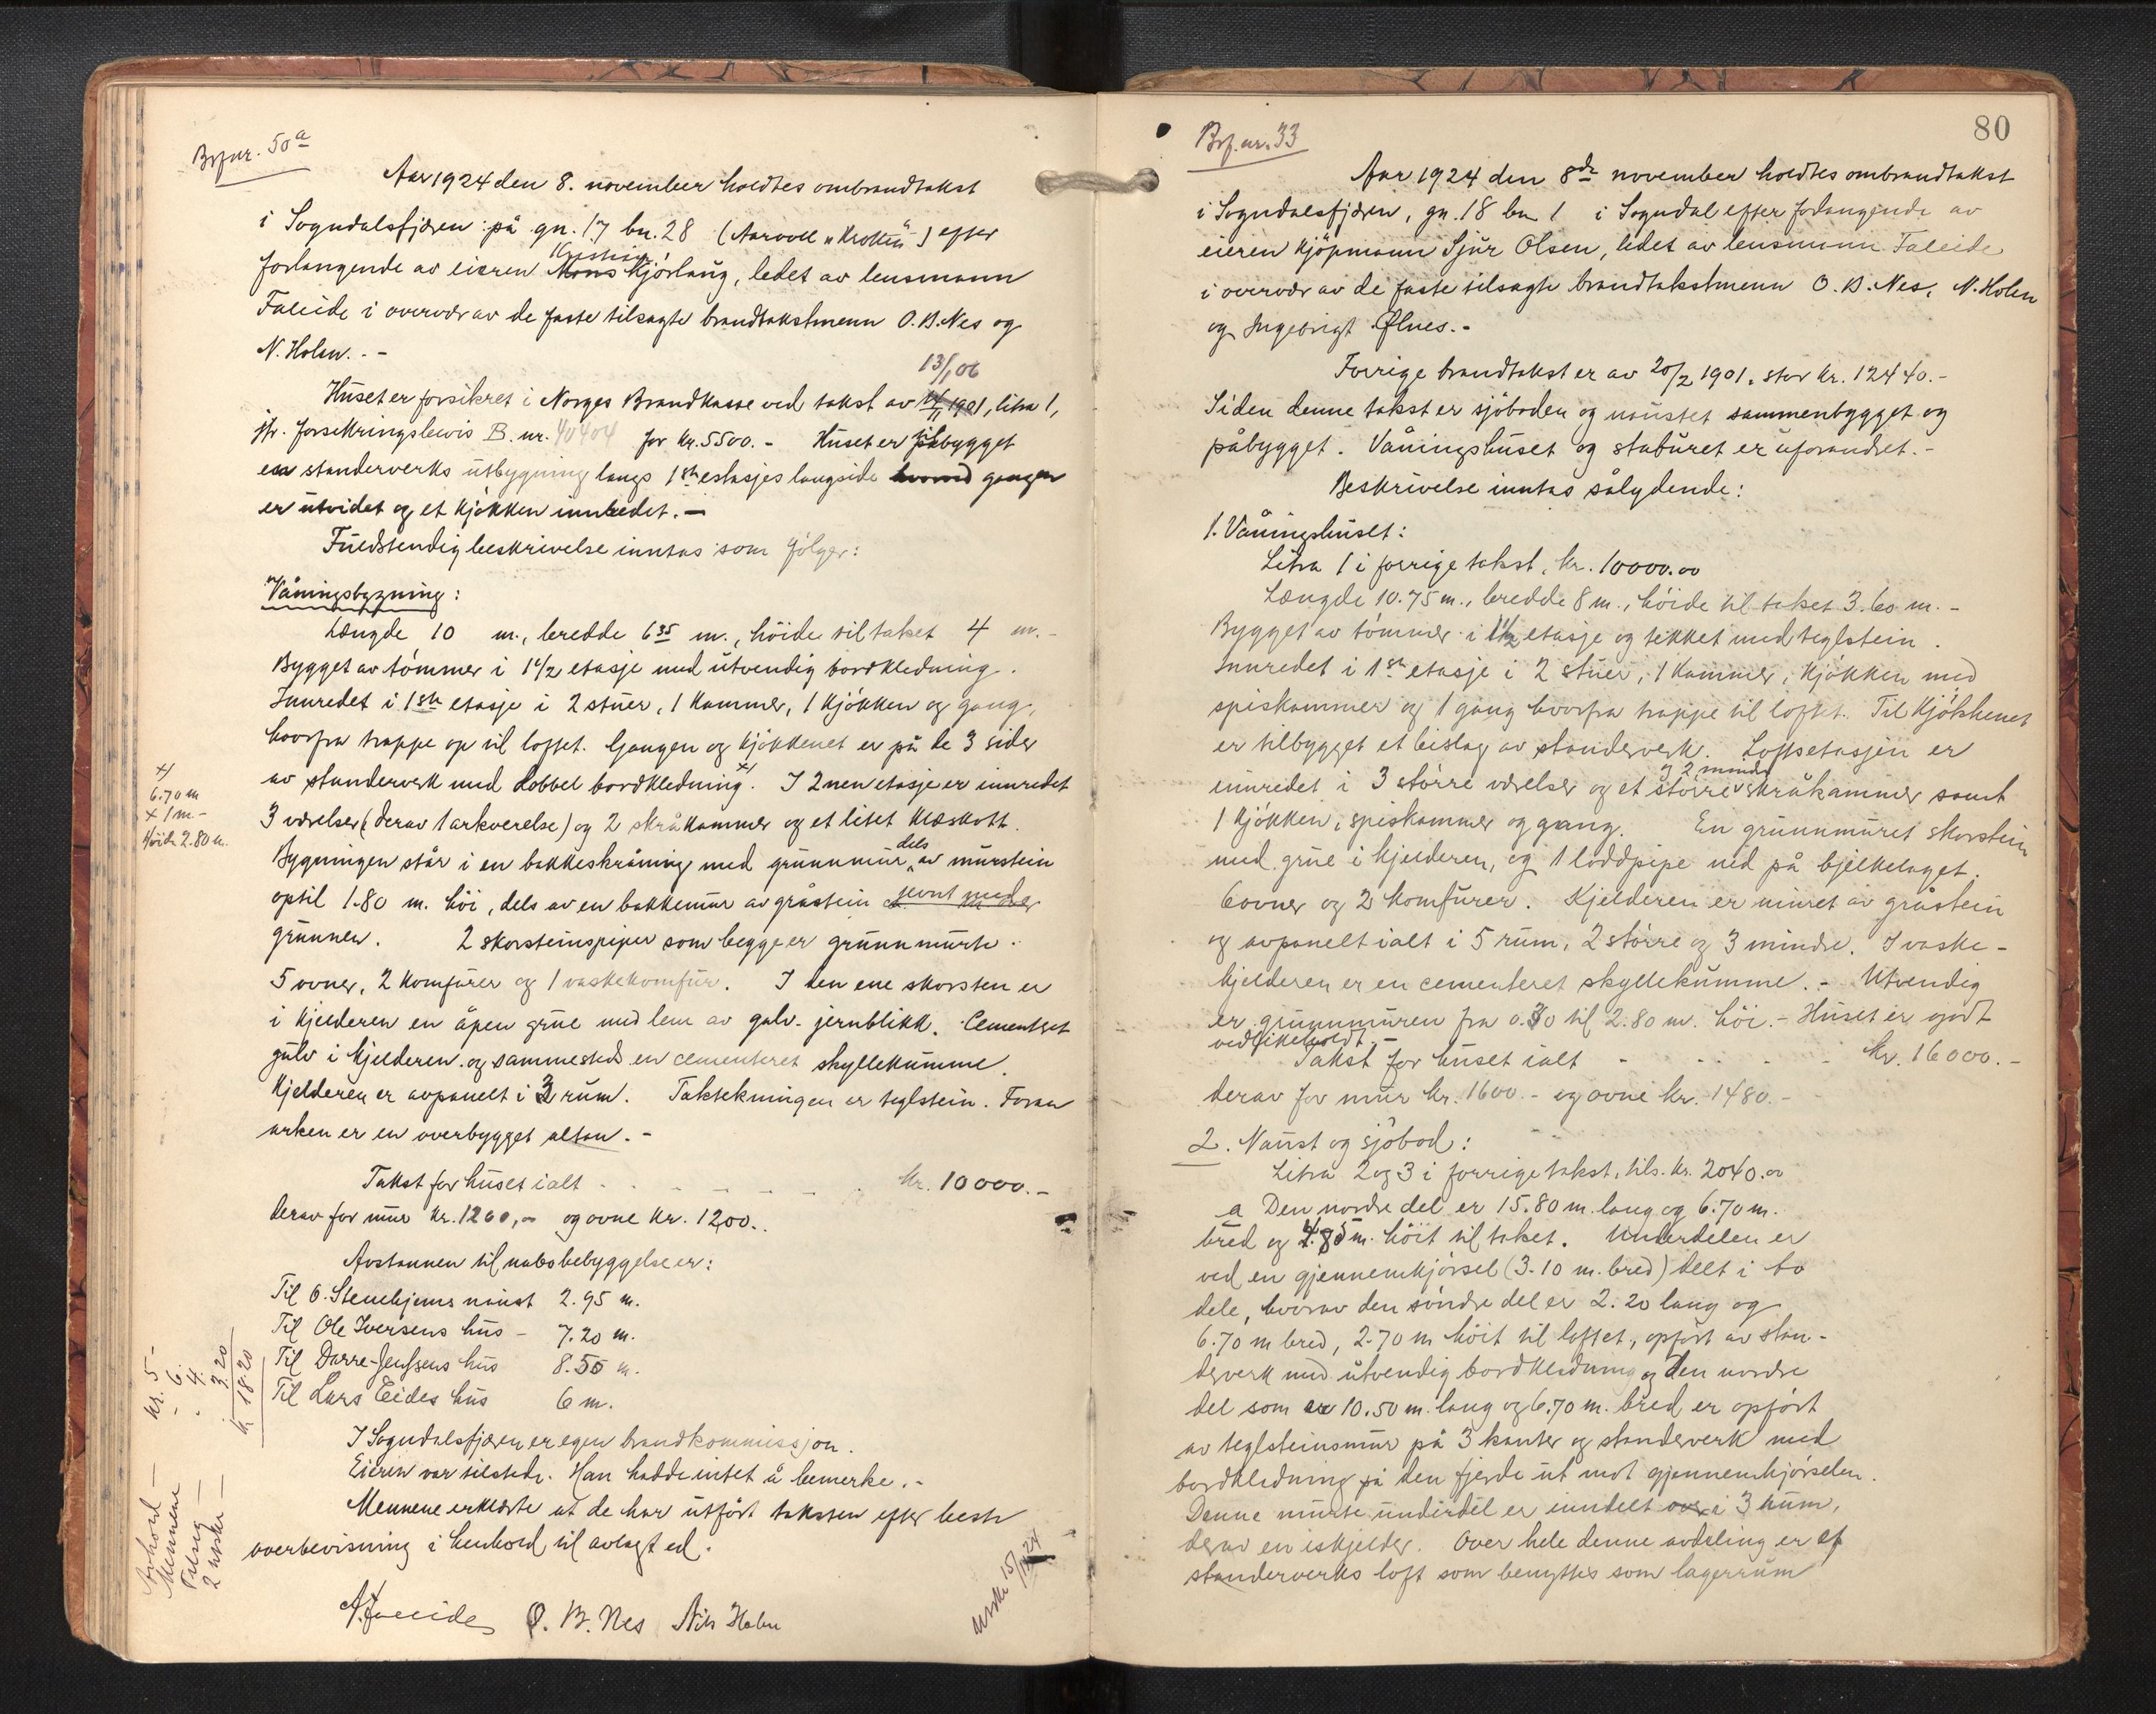 Brf.nr. 50a
Aar 1924 den 8. november holdtes ombrandtakst
i Sogndalsfjæren på gn. 17 bn. 28 (Aarvoll "Krotten") efter
Kristian
forlangende av eieren Mons Kjørlaug, ledet av lensmann
Faleide i overvær av de faste tilsagte brandtakstmenn O. B. Nes og
N. Holen. . -
13/1 06
Huset er forsikret i Norges Brandkasse ved takst av 1901, litra 1,
jfr. forsikringsbevis B. nr. 40404 for kr. 5500. - Huset er påbygget
en standerverks utbygning langs 1ste etasjes langside hvorved gangen
er utvidet og et kjøkken innredet. -
Fuldstendig beskrivelse inntas som følger:
"Våningsbygning:
Længde 10 m., bredde 6 35 m., høide til taket 4 m. -
Bygget av tømmer i 1 1/2 etasje med utvendig bordkledning.
Innredet i 1ste etasje i 2 stuer, 1 kammer, 1 kjøkken og gang,
hvorfra trappe op til loftet. Gangen og kjøkkenet er på de 3 sider
av standerverk med dobbel bordkledning x/. I 2nen etasje er innredet
x/
6.70 m
x 1 m -
Høide 2.80 m.
3 værelser (derav 1 arkverelse) og 2 skråkammer og et litet klæskott.
Bygningen står i en bakkeskråning med grunnmur dels av murstein
optil 1.80 m. høi, dels av en bakkemur av gråstein jevnt med
grunnen. 2 skorsteinspiper som begge er grunnmurte.
5 ovner, 2 komfurer og 1 vaskekomfur. I den ene skorsten er
i kjelderen en åpen grue med lem av galv. jernblikk. Cementeret
gulv i kjelderen og sammesteds en cementeret skyllekumme.
Kjelderen er avpanelt i 3 rum. Taktekningen er teglstein. Foran
arken er en overbygget altan. -
Takst for huset ialt - - - - - - kr. 10000. -
derav for mur kr. 1260,- og ovne kr. 1200..
Avstannen til nabobebyggelse er:
Til O. Stenehjems naust 2.95 m.
Til Ole Iversens hus - 7.20 m.
Til Darre-Jenssens hus 8.55 m.
Til Lars Eides hus 6 m.
I Sogndalsfjæren er egen brandkommissjon.
Eieren var tilstede. Han hadde intet å bemerke. -
Mennene erklærte at de har utført taksten efter beste
overbevisning i henhold til avlagt ed.
AFaleide O. B. Nes Nils Holen
Avhold — kr. 5 -
Mennene - 6.
- 4.
2 — 3.20
kr. 18.20
15/11 24
80
Brf.nr. 33
Aar 1924 den 8de november holdtes ombrandtakst
i Sogndalsfjæren, gn. 18 bn 1 i Sogndal efter forlangende av
eieren kjøpmann Sjur Olsen, ledet av lensmann Faleide
i overvær av de faste tilsagte brandtakstmenn O. B. Nes, N. Holen
og Ingebrigt Ølnes. -
Forrige brandtakst er av 20/2 1901, stor kr. 12440. -
Siden denne takst er sjøboden og naustet sammenbygget og
påbygget. Våningshuset og staburet er uforandret. -
Beskrivelse inntas sålydende:
1. Våningshuset:
Litra 1 i forrige takst, kr. 10000.00
Længde 10.75 m., bredde 8 m., høide til taket 3.60 m. -
Bygget av tømmer i 1 1/2 etasje og tekket med teglstein.
Innredet i 1ste etasje i 2 stuer, 1 kammer, kjøkken med
spiskammer og 1 gang hvorfra trappe til loftet. Til kjøkkenet
er tilbygget et bislag av standerverk. Loftsetasjen er
og 2 mindre
innredet i 3 større værelser og et større skråkammer samt
1 kjøkken, spiskammer og gang. En grunnmuret skorstein
med grue i kjelderen, og 1 loddpipe ned på bjelkelaget.
6 ovner og 2 komfurer. Kjelderen er muret av gråstein
og avpanelt ialt i 5 rum, 2 større og 3 mindre. I vaske-
kjelderen er en cementeret skyllekumme. - Utvendig
er grunnmuren fra 0.30 til 2.80 m. høi. - Huset er godt
vedlikeholdt. -
Takst for huset ialt - - - - - kr. 16000. -
derav for mur kr. 1600. - og ovne kr. 1480. -
2. Naust og sjøbod:
Litra 2 og 3 i forrige takst, tils. kr. 2040.00
a Den nordre del er 15.80 m. lang og 6.70 m.
bred og 4.85 m. høit til taket. Underdelen er
ved en gjennemkjørsel (3.10 m. bred) delt i to
dele, hvorav den søndre del er 2.20 lang og
6.70 m bred, 2.70 m høit til loftet, opført av stan-
derverk med utvendig bordkledning og den nordre
del som er 10.50 m. lang og 6.70 m. bred er opført
av teglsteinsmur på 3 kanter og standerverk med
bordkledning på den fjerde ut mot gjennemkjørselen.
Denne murte underdel er inndelt i 3 rum,
derav en iskjelder. Over hele denne avdeling er et
standerverks loft som benyttes som lagerrum